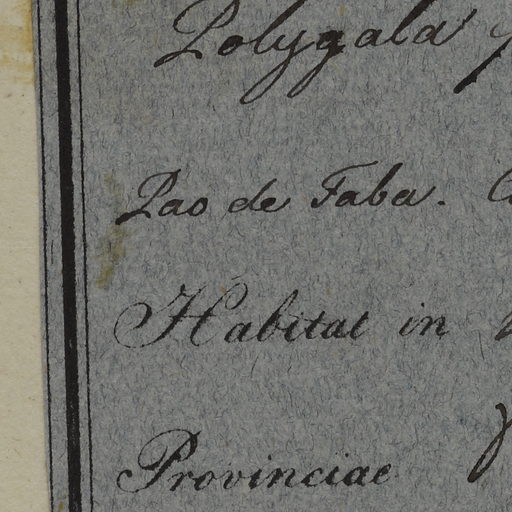 Polygala
Pao de Faba.
Habitat in
Provinciae